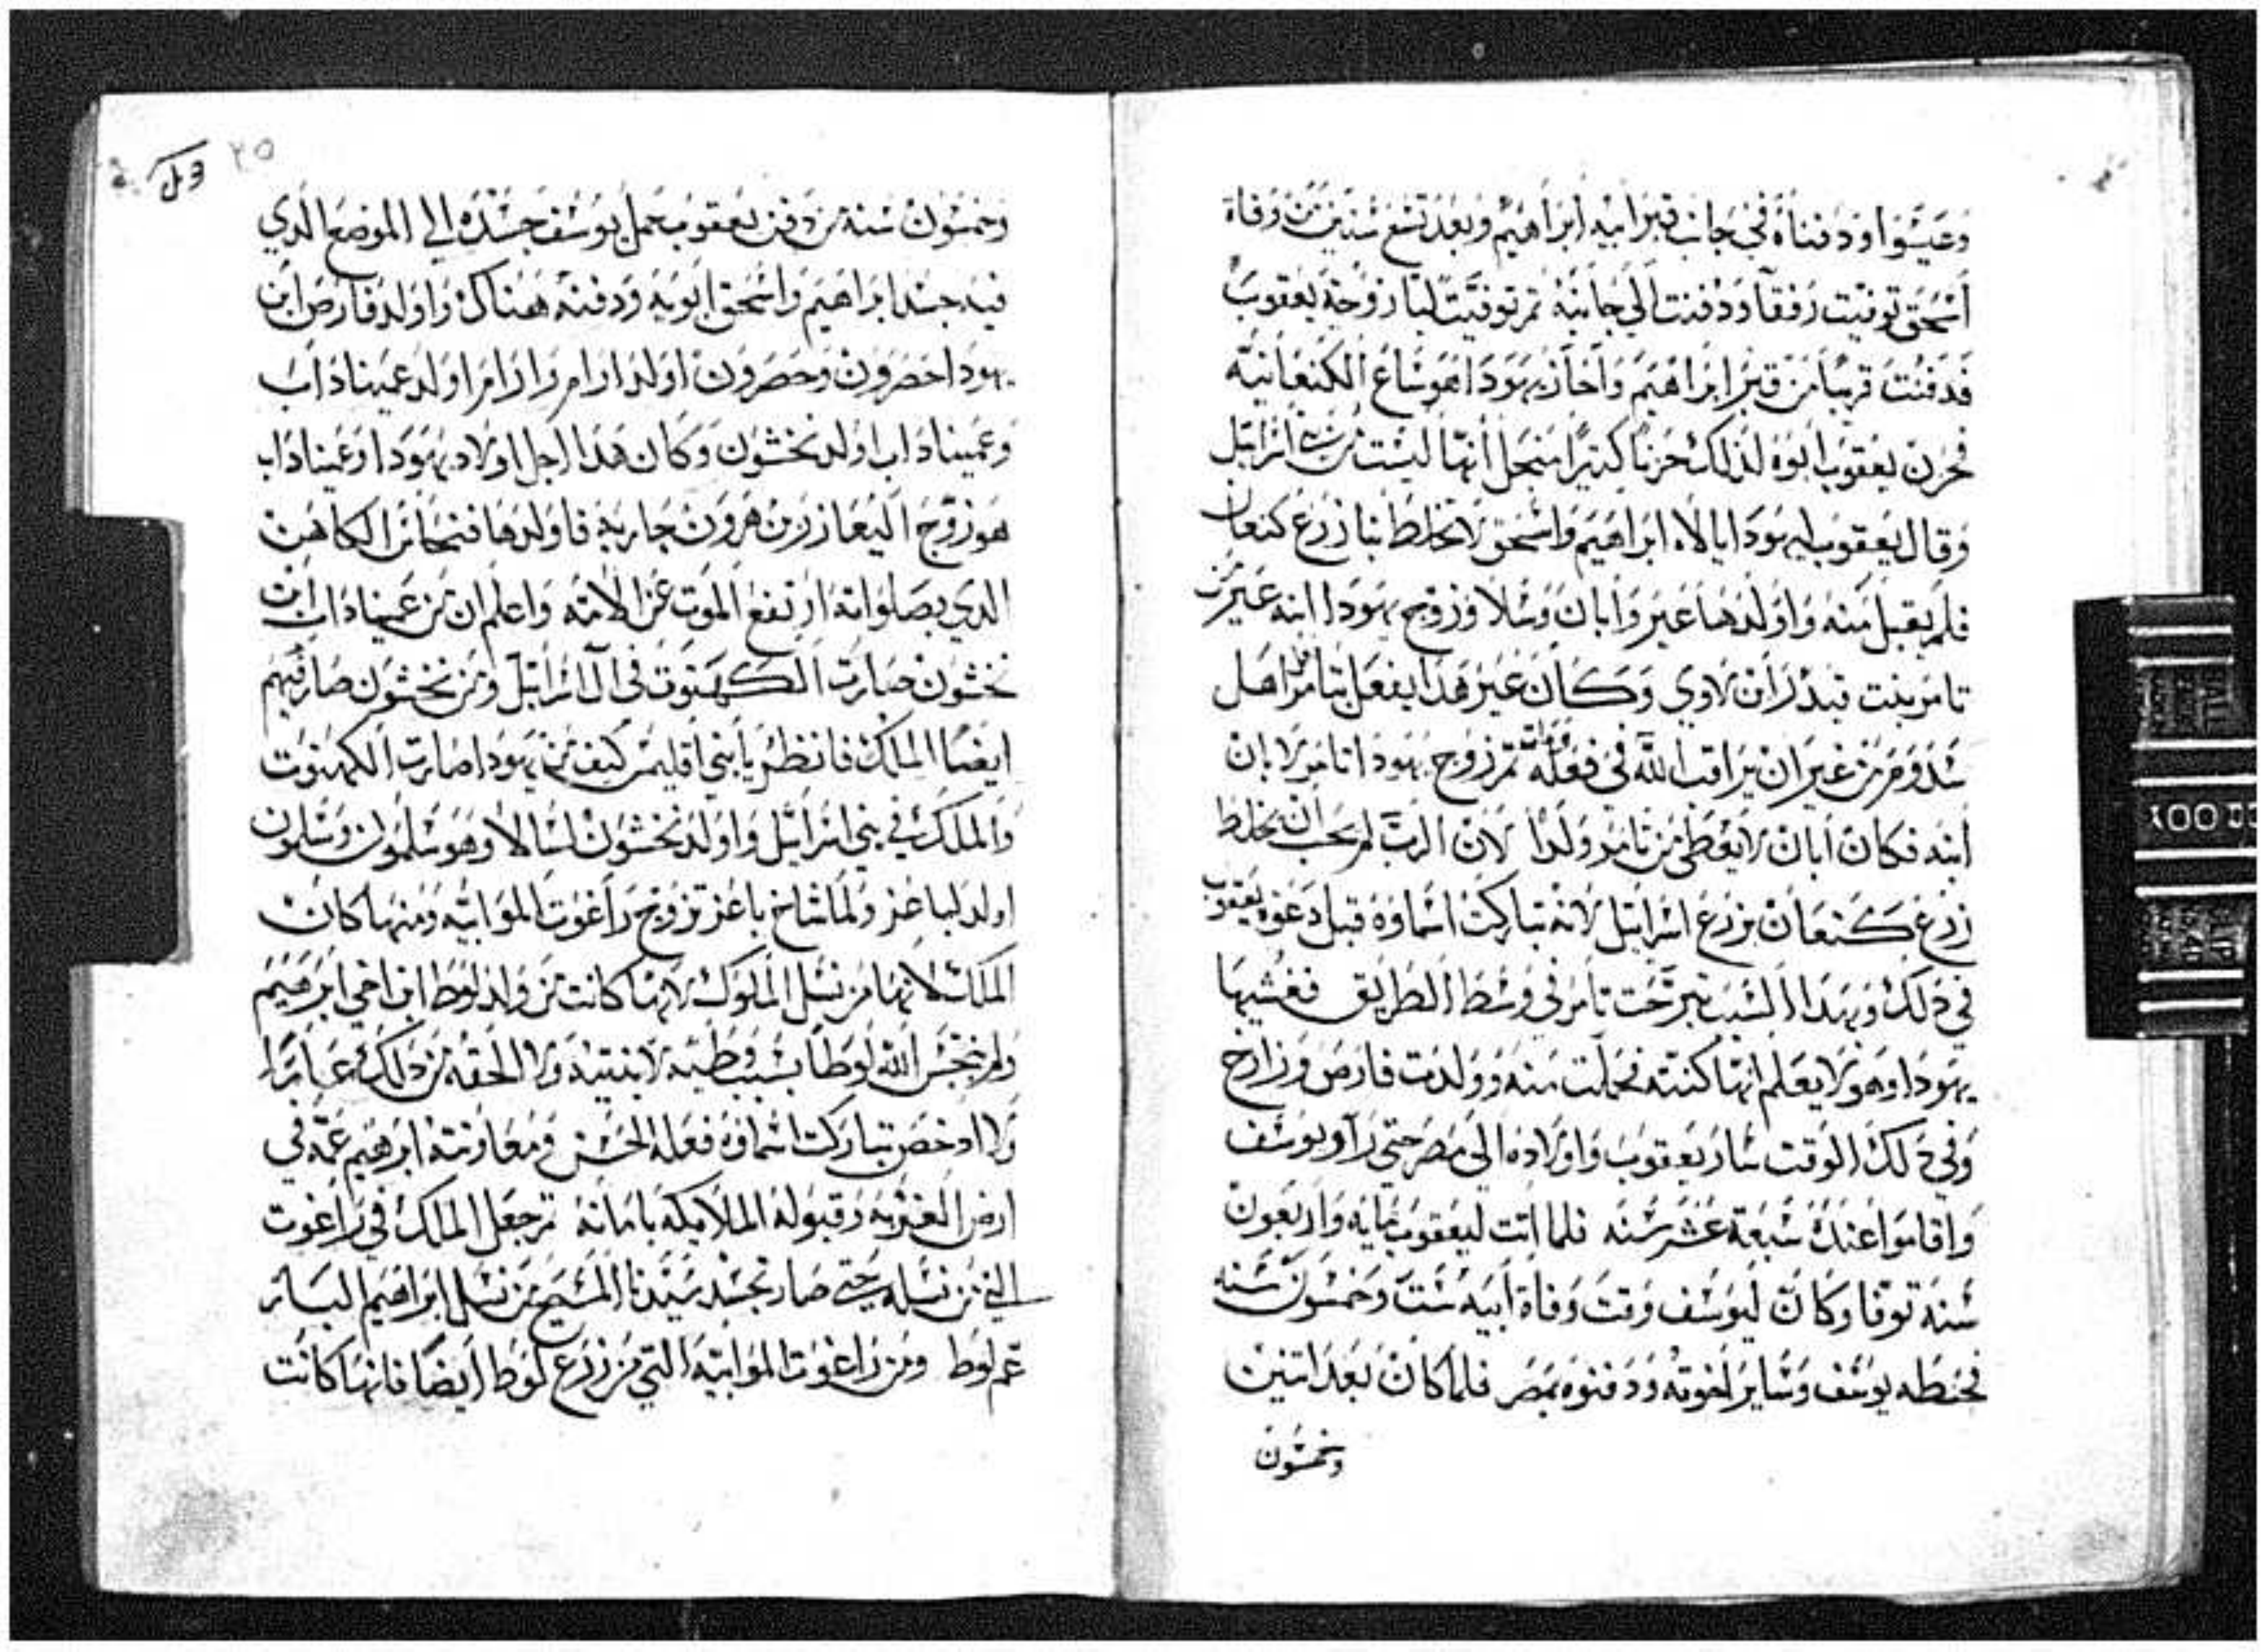 وعيسوا ودفناه في جانب قبر ابيه ابراهيم وبعد تسع سنين من وفاة
اسحق توفيت رفقا ودفنت الي جانبه ثم توفيت ليا زوجة يعقوب
فدفنت قريبا من قبر ابراهيم واخذ يهودا هوشاع الكنعانيه
فحزن يعقوب ابوه لذلك حزنا كثيرا منجل انها ليست من اسرايل
وقال يعقوب ليهودا يالاه ابراهيم واسحق لا تخلط بنا زرع كنعان
فلم يقبل منه واولدها عير وابان وسلا وزوج يهودا ابنه عير من
تامر بنت قيدر ان لاوي وكان عير هذا يفعل بتامر فعل اهل
سدوم من غير ان يراقب الله في فعله ثم زوج يهودا تامر لابان
ابنه فكان ابان لا يعطي من تامر ولدا لان الرب لم يحب ان يخلط
زرع كنعان بزرع اسرايل لانه تباركت اسماوه قبل دعوة يعقوب
في ذلك وبهدا السبب تبرجت تامر في وسط الطريق فغشيها
يهودا وهو لا يعلم انها كنته فحملت منه وولدت فارص وزارح
وفي ذلك الوقت سار يعقوب واولاده الي مصر حتي رآو يوسف
واقاموا عنده سبعة عشر سنه فلما اتت ليعقوب مايه واربعون
سنة توفا وكان ليوسف وقت وفاة ابيه ست وخمسون سنه
فحنطه يوسف وساير اخوته ودفنوه بمصر فلما كان بعد اتنين
وخمسون
٢٥
وخمسون سنة من دفن يعقوب حمل يوسف جسده الي الموضع الدي
فيه جسد ابراهيم واسحق ابويه ودفنه هناك واولد فارص ابن
يهودا حصرون وحصرون اولد ارام وارام اولد عميناداب
وعميناداب اولد نخشون وكان هدا اجل اولاد يهودا وعميناداب
هو زوج اليعازر بن هرون جاريه فاولدها فنحاس الكاهن
الدي بصلواته ارتفع الموت عن الامه واعلم ان من عميناداب ابن
نخشون صارت الكهنوت في ال اسرايل ومن نخشون صار فيهم
ايضا الملك فانظر يابني اقليمس كيف من يهودا صارت الكهنوت
والملك في بني اسرايل واولد نخشون لسالا وهو سلمون وسلمون
اولد لباعز ولما شاخ باعز تزوج راغوت الموابيه ومنها كان
الملك لانها من نسل الملوك لانها كانت من ولد لوط ابن اخي ابرهيم
ولم ينجس الله لوطا بسبب وطيه لابنتيه ولا الحقه من دلك عارا
ولا ادحض تباركت اسماوه فعله الحسن ومعاونته ابرهيم عمه في
ارض الغربه وقبوله الملايكه بامانه ثم جعل الملك في راغوت
الني من نسله حتي صار تجسد سيدنا المسيح من نسل ابراهيم البار
عم لوط ومن راغوت الموابيه التي من زرع لوط ايضا فانها كانت